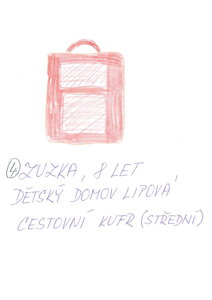 ④ ZUZKA, 8 LET
DĚTSKÝ DOMOV LIPOVÁ,
CESTOVNÍ KUFR (STŘEDNÍ)